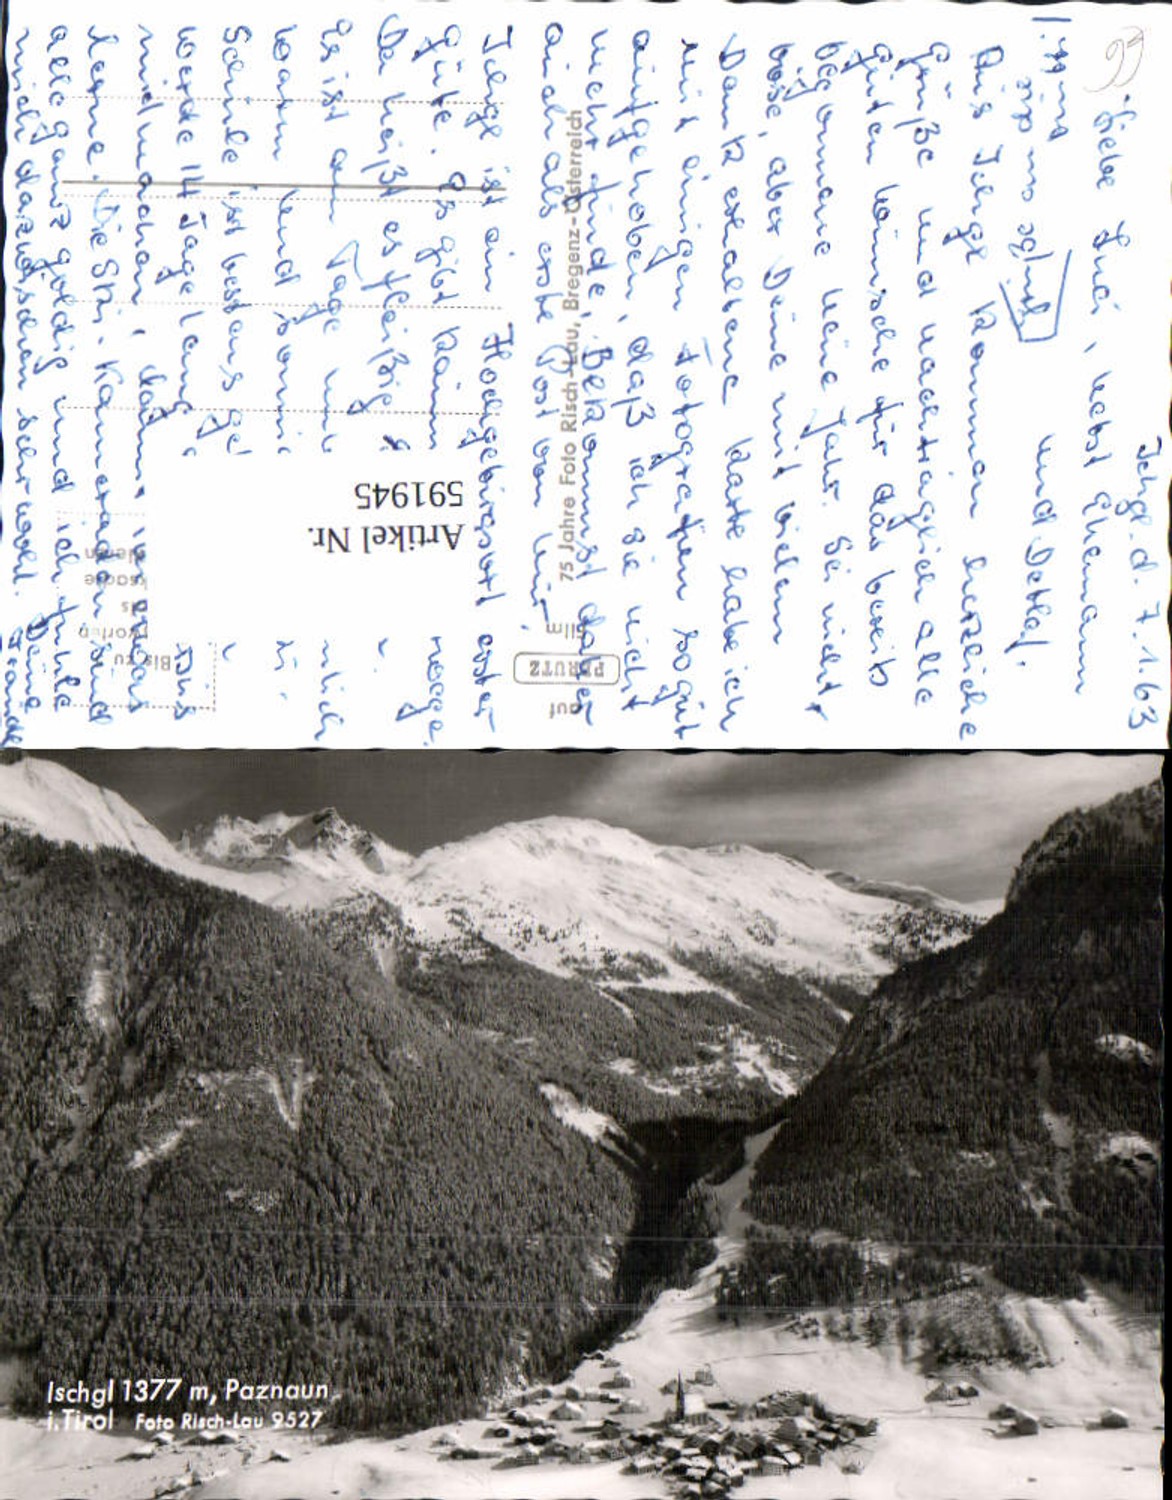 Ischgl. d. 7.1.63
Liebe Luci, nebst Ehemann
und Detlef.
Aus Ischgl kommen herzliche
Grüße und nachträglich alle
guten Wünsche für das bereits
begonnene neue Jahr. Sei nicht
böse, aber Deine mit vielem
Dank erhaltene Karte habe ich
mit einigen Fotografien so gut
aufgehoben, daß ich sie nicht
mehr finde. Bekommst daher
auch als erste Post von mir.
Ischgl ist ein Hochgebirgsort erster
Güte. Es gibt kaum
Da heißt es fleißig
Es ist am Tage
warm und sonnig
Schnee ist bestens
werde 14 Tage lang
mitmachen, damit
lerne. Die Ski-Kameraden sind
alle ganz goldig und ich fühle
mich dazwischen sehr wohl. Deine
75 Jahre Foto Risch-Lau, Bregenz-Österreich
auf
PERUTZ
Film
Artikel Nr.
591945
Bis zu
Ischgl 1377 m, Paznaun
i. Tirol Foto Risch-Lau 9527